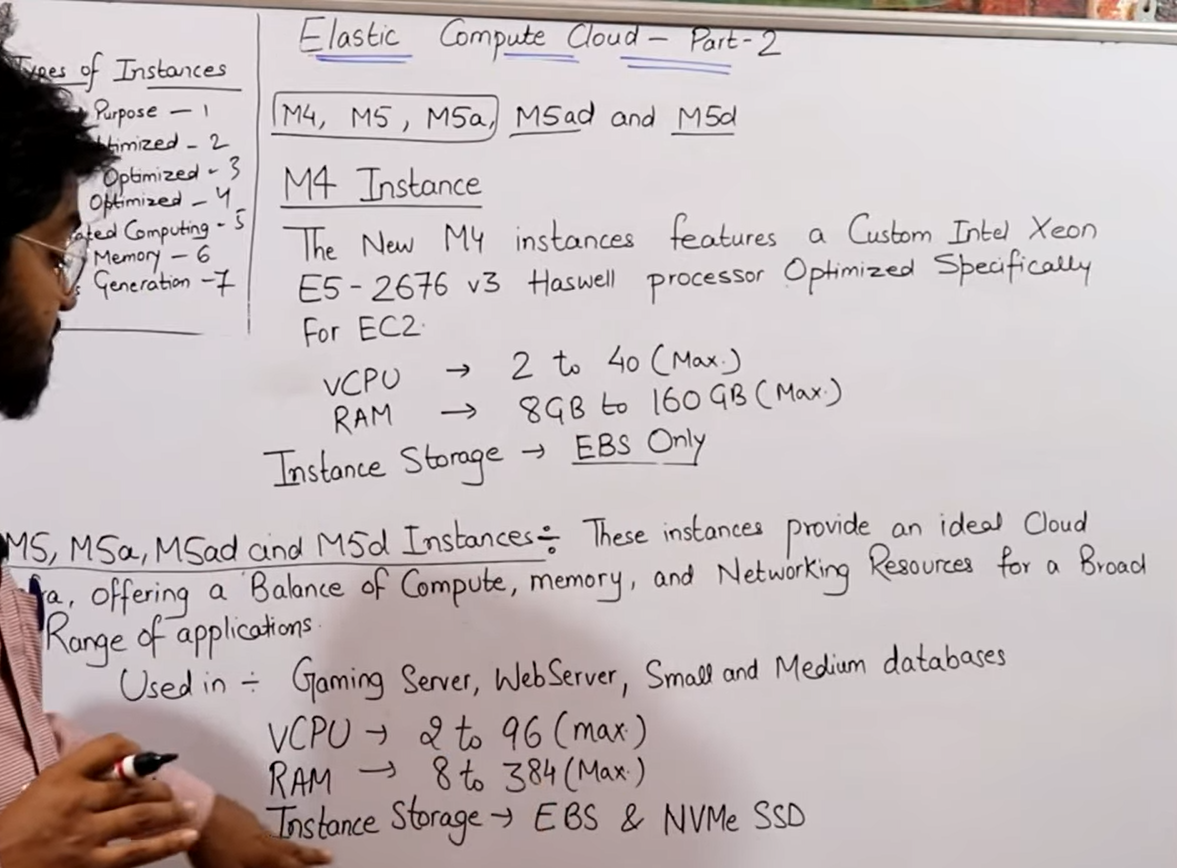 Elastic Compute Cloud - Part-2
of Instances
Purpose - 1
- 2
Optimized - 3
Optimized - 4
Computing - 5
Memory - 6
Generation - 7
M4, M5, M5a, M5ad and M5d
M4 Instance
The New M4 instances features a Custom Intel Xeon
E5-2676 v3 Haswell processor Optimized Specifically
For EC2.
VCPU → 2 to 40 (Max.)
RAM → 8GB to 160GB (Max.)
Instance Storage → EBS Only
M5, M5a, M5ad and M5d Instances÷ These instances provide an ideal Cloud
offering a Balance of Compute, memory, and Networking Resources for a Broad
Range of applications.
Used in ÷ Gaming Server, WebServer, Small and Medium databases
VCPU → 2 to 96 (max.)
RAM → 8 to 384 (Max.)
Instance Storage → EBS & NVMe SSD